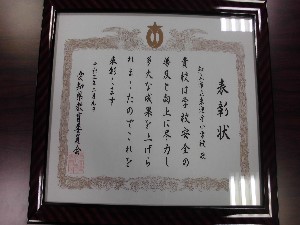 表彰状
貴校は学校安全の
普及と向上に尽力し
多大な成果を上げら
れましたのでこれを
表彰します
愛知県教育委員会